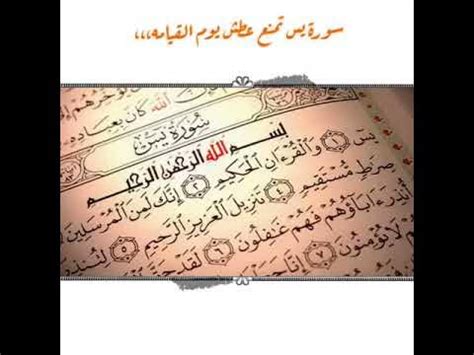 سورة يس تمنع عطش يوم القيامه،،،
الله كان بعباده
سُورَةُ يسٓ
بسم الله الرحمن الرحيم
يسٓ ١ وَٱلْقُرْءَانِ ٱلْحَكِيمِ ٢ إِنَّكَ لَمِنَ ٱلْمُرْسَلِينَ
صِرَٰطٍ مُّسْتَقِيمٍ ٤ تَنزِيلَ ٱلْعَزِيزِ ٱلرَّحِيمِ ٥ لِتُنذِ
أُنذِرَ ءَابَآؤُهُمْ فَهُمْ غَٰفِلُونَ ٦ لَقَدْ
لَا يُؤْمِنُونَ ٧ إِنَّا